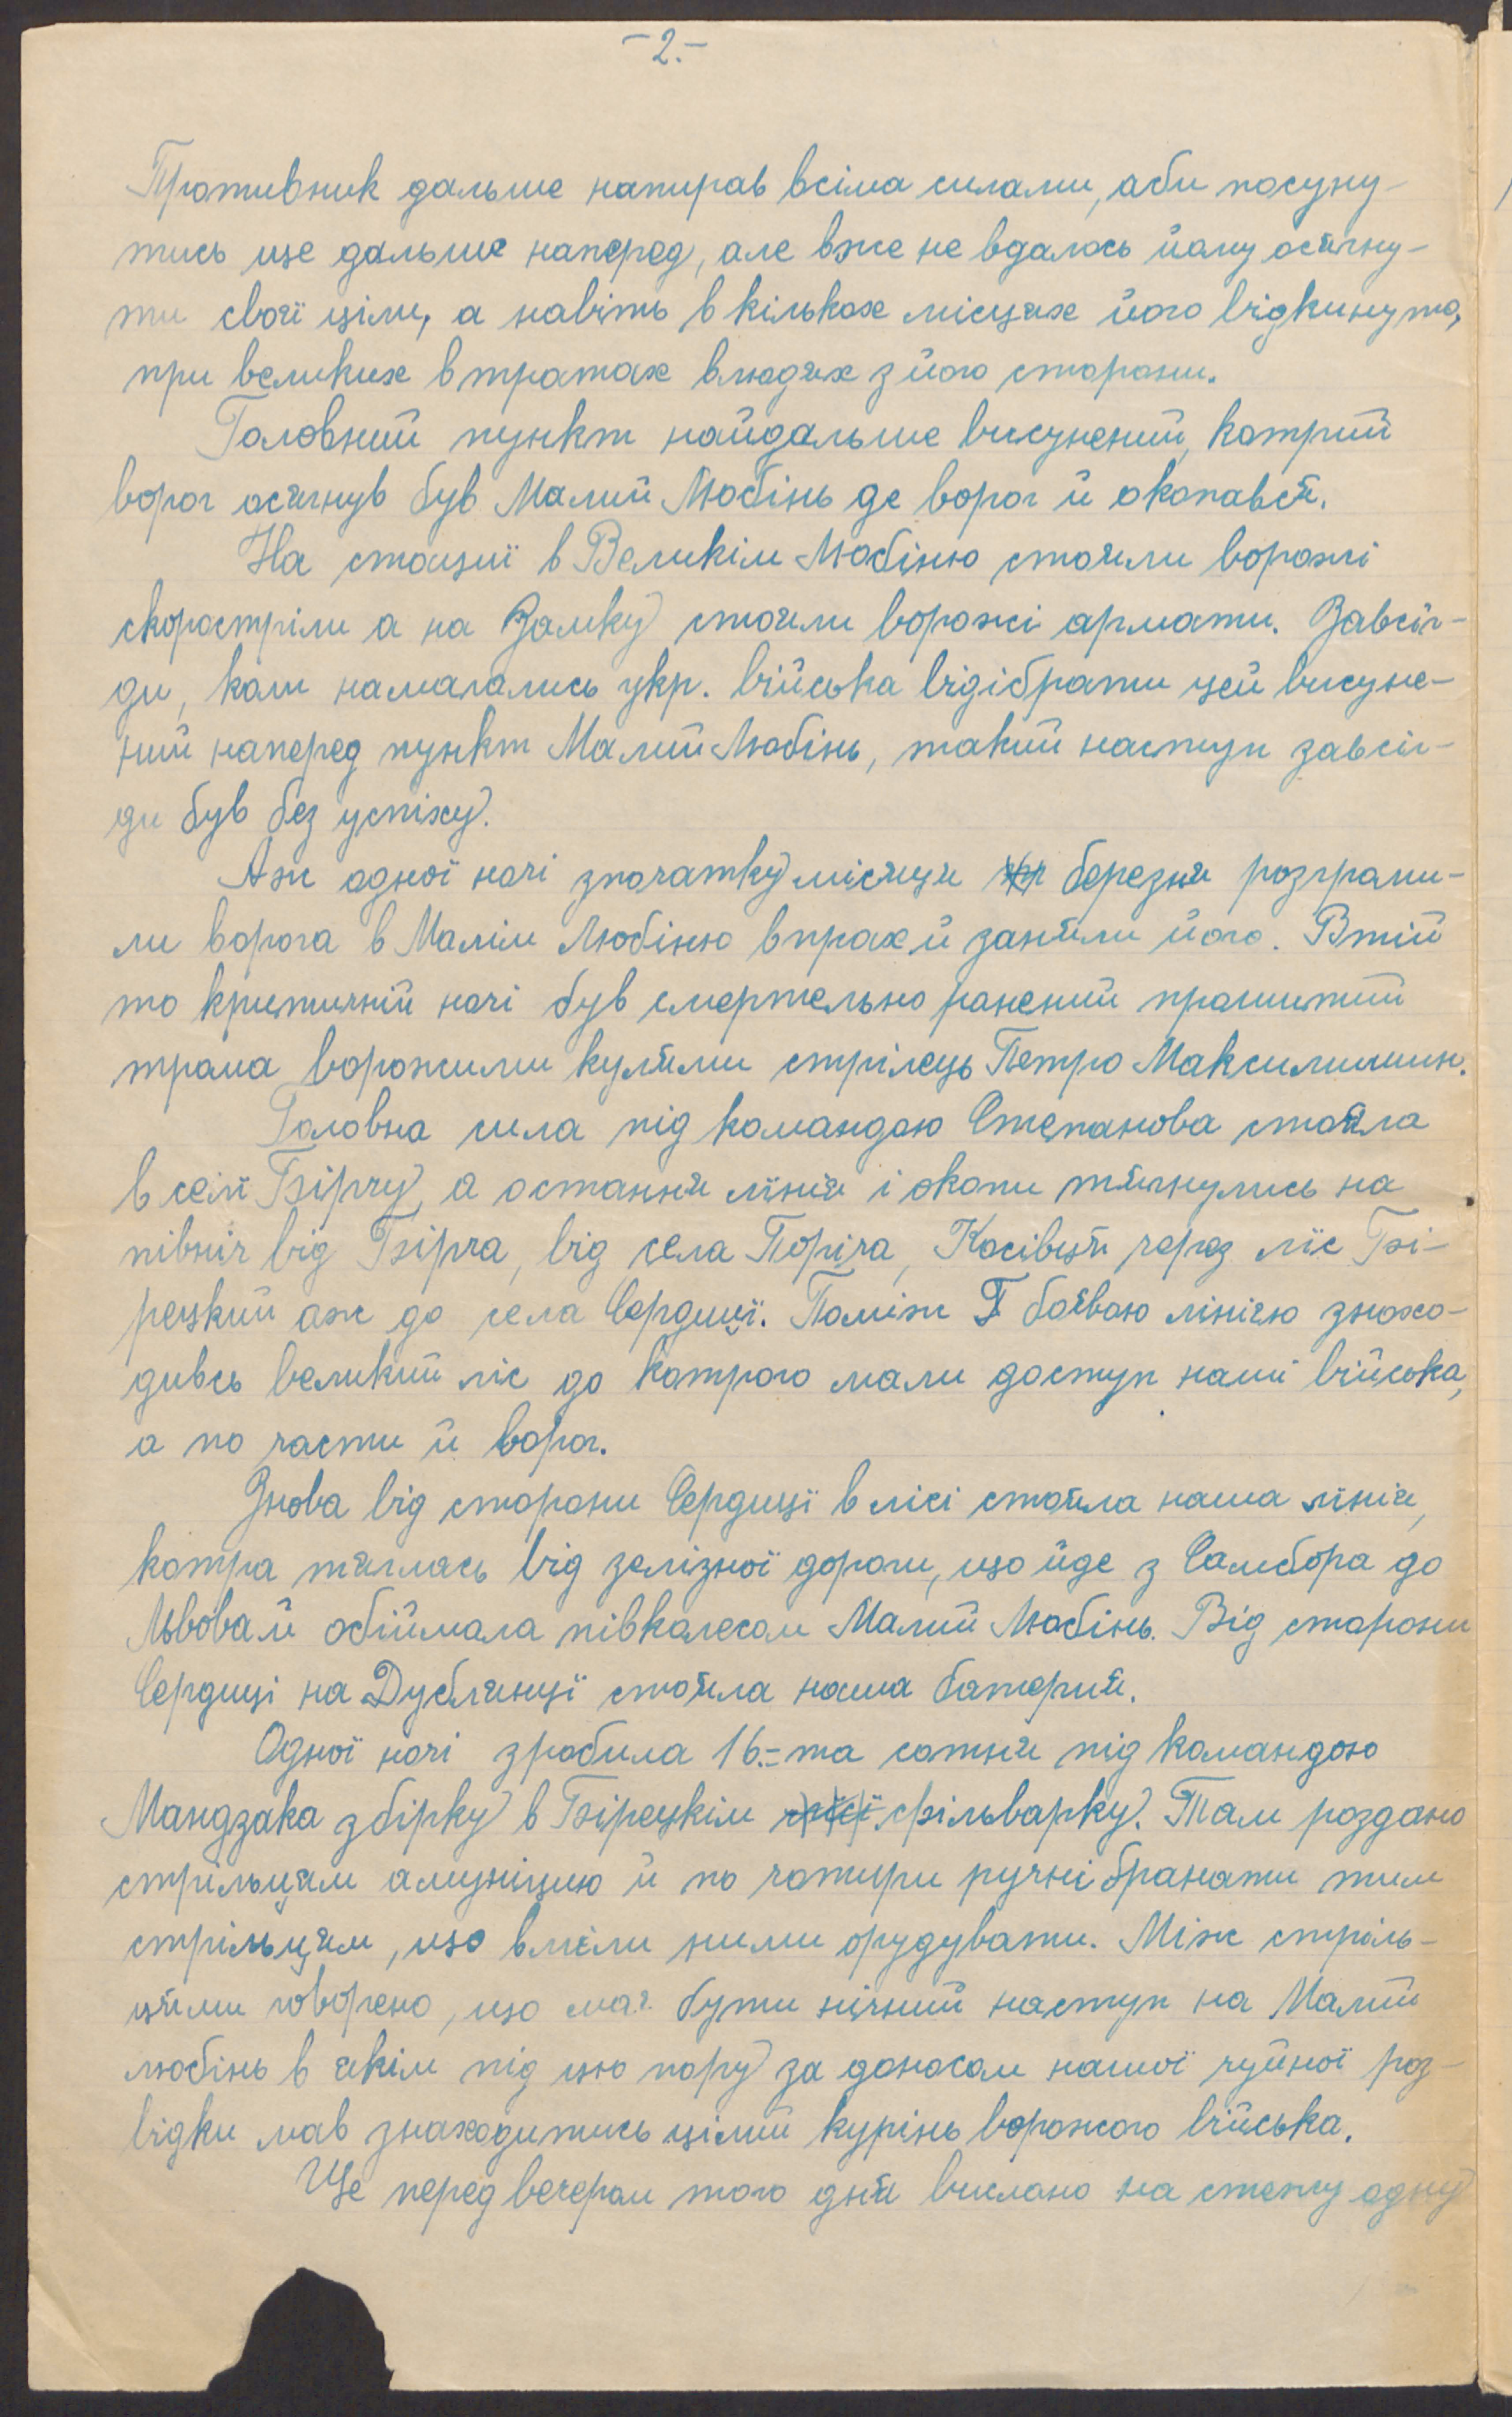 -2.-
Противник дальше напирав всіма силами, аби посуну-
тись ще дальше наперед, але вже не вдалось йому осягну-
ти свої ціли, а навіть в кількох місцях його відкинуто,
при великих втратах в людях з його сторони.
Головний пункт найдальше висунений, котрий
ворог осягнув був Малий Любінь де ворог й окопався.
На стації в Великім Любіню стояли ворожі
скоростріли а на Замку стояли ворожі армати. Завсіг-
ди, коли намагались укр. війська відібрати цей висуне-
ний наперед пункт Малий Любінь, такий наступ завсіг-
ди був без успіху.
Аж одної ночі з початку місяця березня розгроми-
ли ворога в Малім Любіню в прах й заняли його. В тій
то критичній ночі був смертельно ранений прошитий
трома ворожими кулями стрілець Петро Максимишин.
Головна сила під командою Степанова стояла
в селі Бірчу, а остання лінія і окопи тягнулись на
північ від Бірча, від села Поріча, Косівця через ліс Бі-
рецкий аж до села Сердиці. Поміж боєвою лінією знахо-
дивсь великий ліс до котрого мали доступ наші війська,
а по части й ворог.
Знова від сторони Сердиці в лісі стояла наша лінія,
котра тяглась від зелізної дороги, що йде з Самбора до
Львова й обіймала півколесом Малий Любінь. Від сторони
Сердиці на Дублянці стояла наша батерия.
Одної ночі зробила 16.-та сотня під командою
Мандзака збірку в Бірецкім фільварку. Там роздано
стрільцям амуніцию й по чотири ручні ґранати тим
стрільцям, що вміли ними орудувати. Між стріль-
цями говорено, що має бути нічний наступ на Малий
любінь в якім під цю пору за доносом нашої чуйної роз-
відки мав знаходитись цілий курінь ворожого війська.
Ще перед вечером того дня вислано на стежу одну